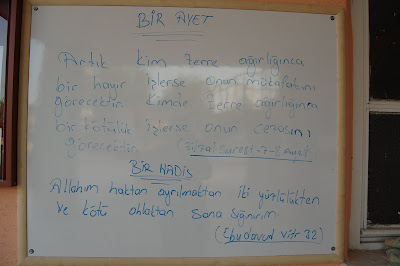 BİR AYET
Artık kim zerre ağırlığınca
bir hayır işlerse onun mükafatını
görecektir. Kimde zerre ağırlığınca
bir kötülük işlerse onun cezasını
görecektir. (Zilzal Suresi-7-8 Ayet)
BİR HADİS
Allahım haktan ayrılmaktan iki yüzlülükten
ve kötü ahlaktan sana sığınırım.
(Ebudavud Vitr 32)